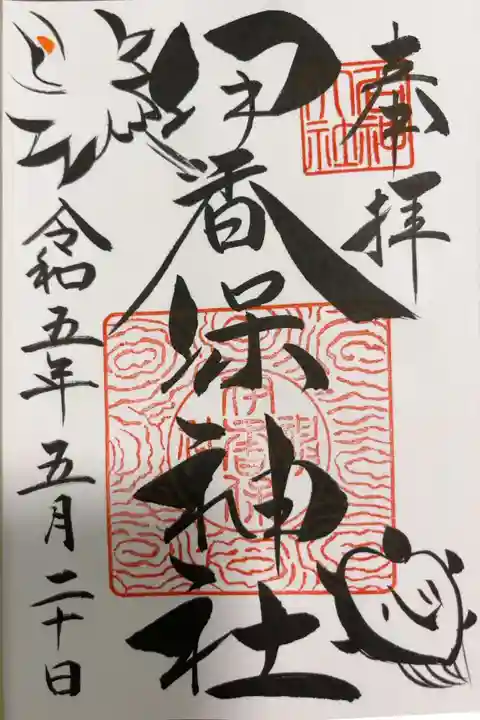 奉拝
伊香保神社
令和五年五月二十日
心